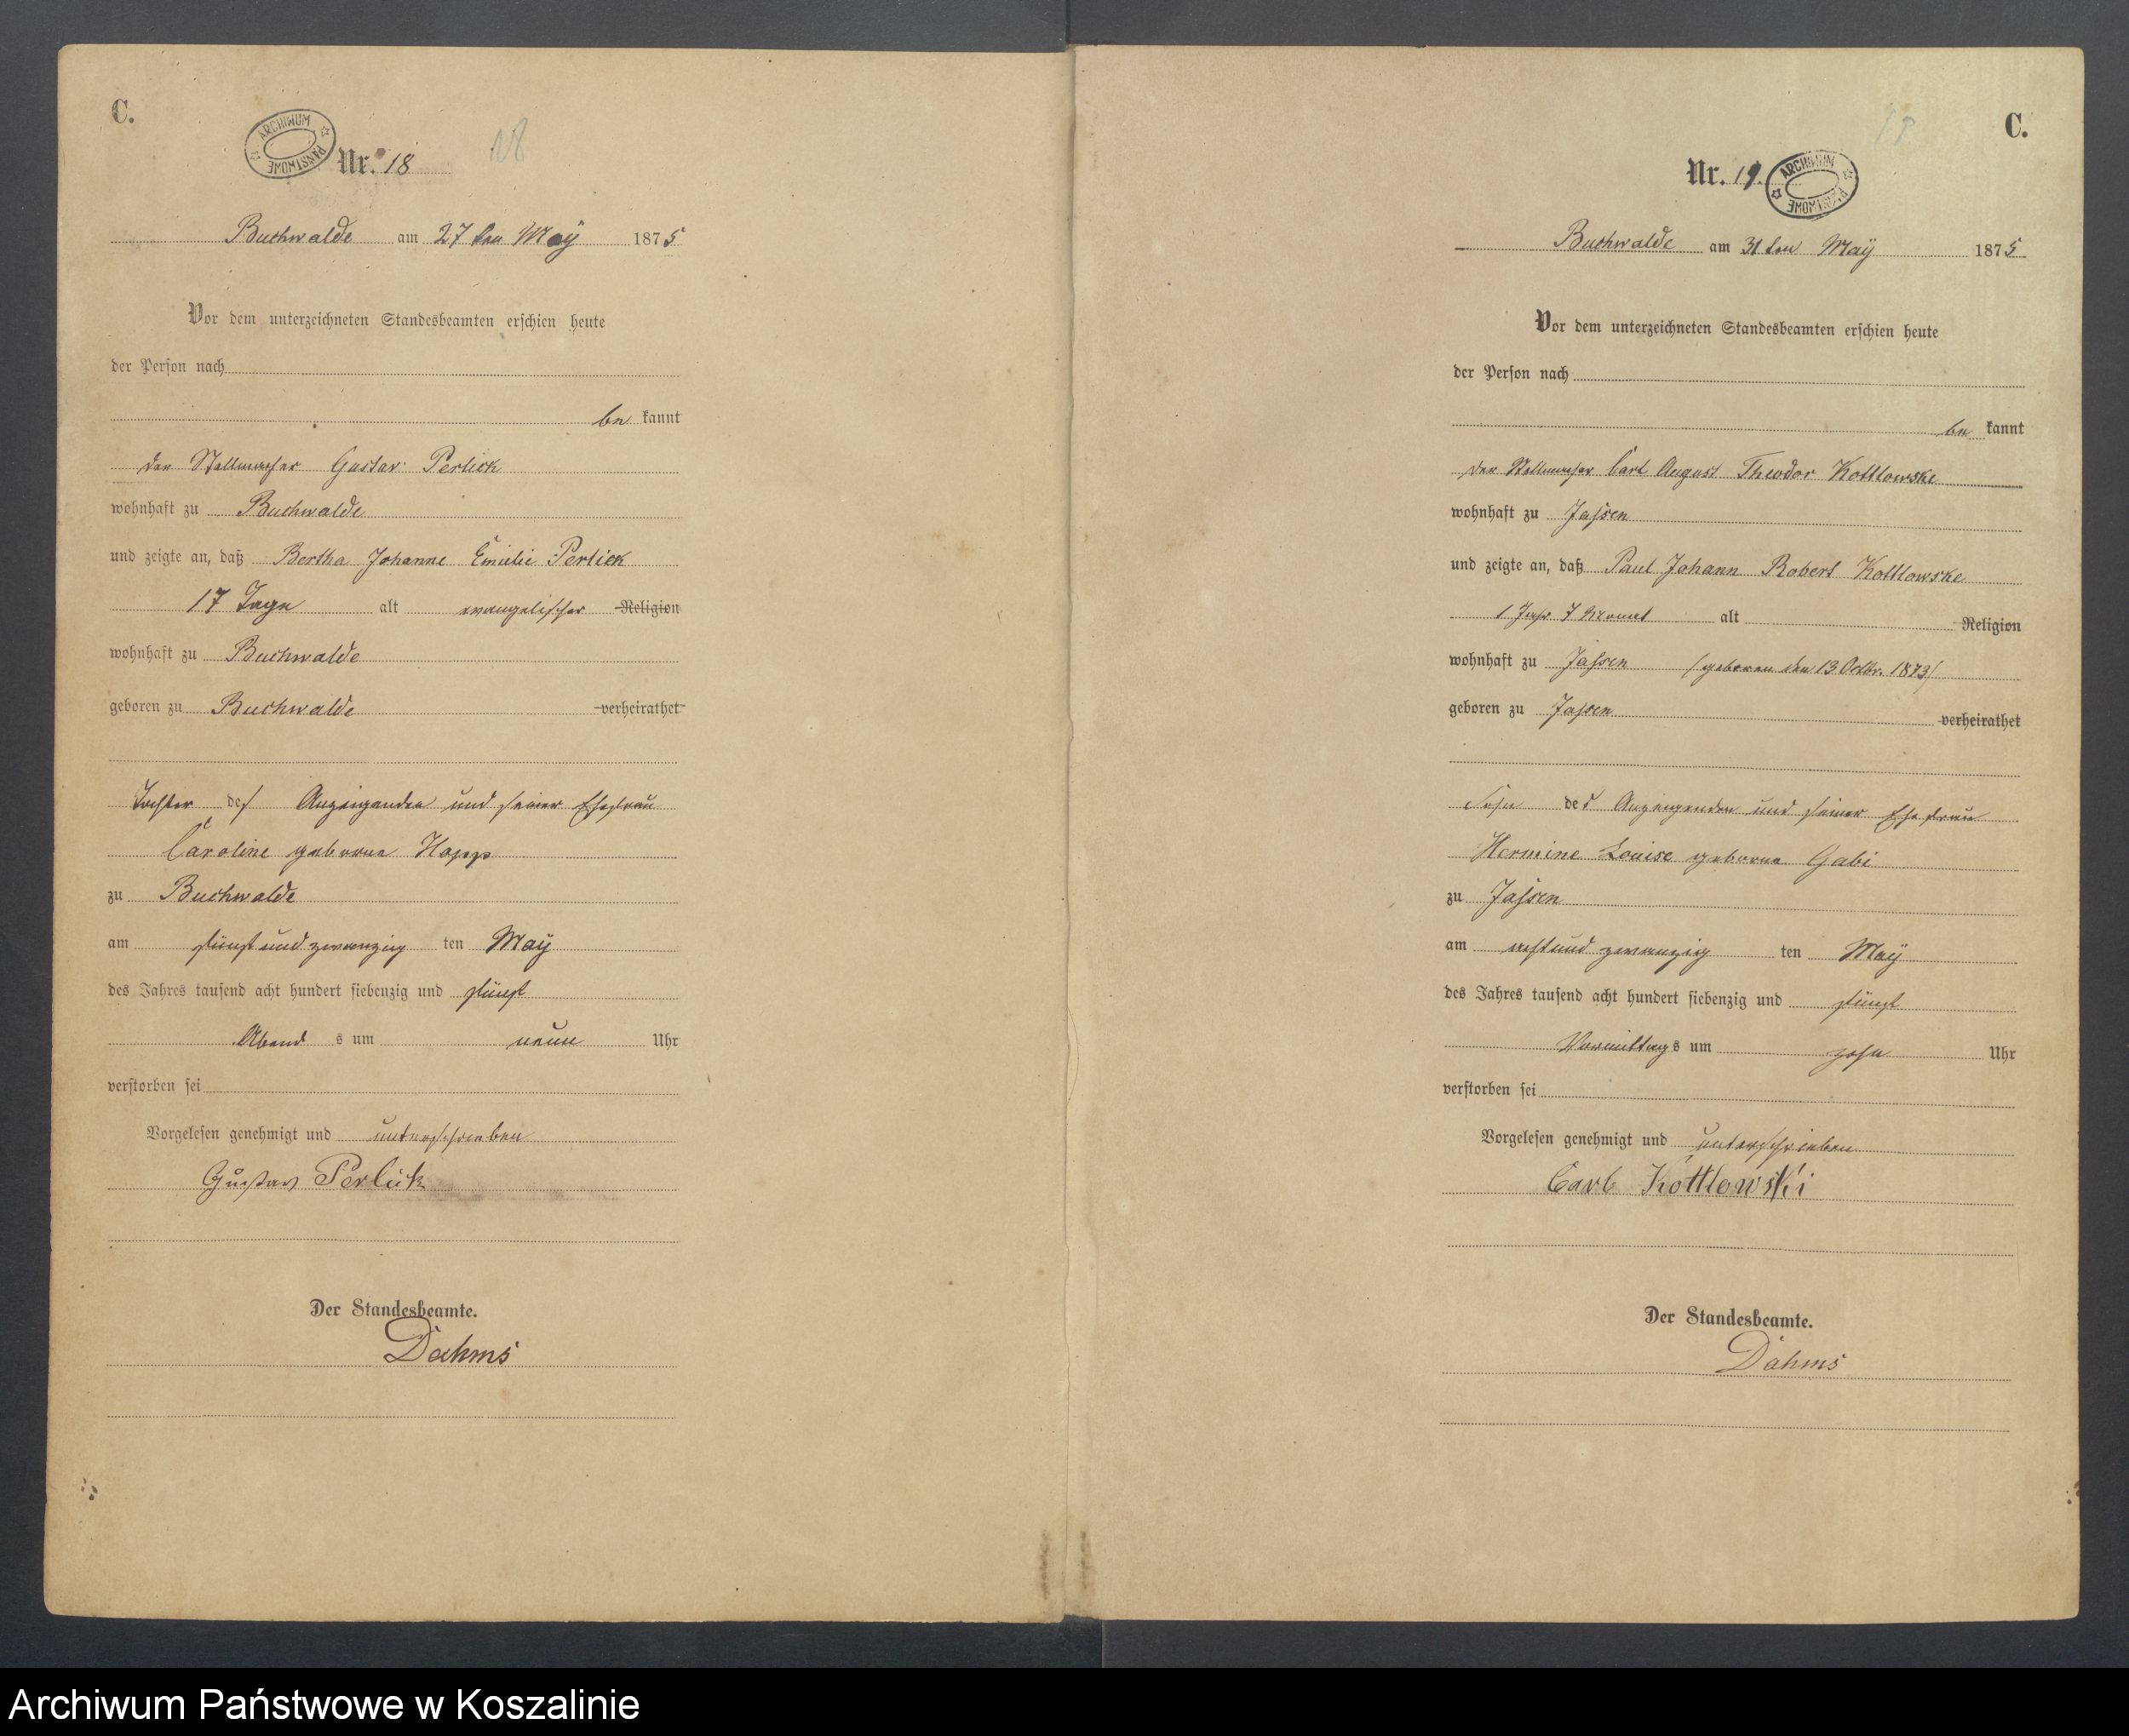 C.
ARCHIWUM PAŃSTWOWE
Nr. 18
18
Buchwalde am 27 ten May 1875
Vor dem unterzeichneten Standesbeamten erschien heute
der Person nach
be kannt
der Stellmacher Gustav Perlick
wohnhaft zu Buchwalde
und zeigte an, daß Bertha Johanne Emilie Perlick
17 Tage alt evangelischer Religion
wohnhaft zu Buchwalde
geboren zu Buchwalde verheirathet
Tochter des Anzeigenden und seiner Ehefrau
Caroline geborne Hopp
zu Buchwalde
am fünf und zwanzig ten May
des Jahres tausend acht hundert siebenzig und fünf
Abend s um neun Uhr
verstorben sei
Vorgelesen genehmigt und unterschrieben
Gustav Perlick
Der Standesbeamte.
Dahms
C.
Nr. 19.
ARCHIWUM PAŃSTWOWE
Buchwalde am 31 ten May 1875
Vor dem unterzeichneten Standesbeamten erschien heute
der Person nach
be kannt
der Stellmacher Carl August Theodor Kottlowske
wohnhaft zu Jassen
und zeigte an, daß Paul Johann Robert Kottlowske
1 Jahr 7 Monat alt Religion
wohnhaft zu Jassen /geboren den 13 Octbr. 1873/
geboren zu Jassen verheirathet
Sohn des Anzeigenden und seiner Ehefrau
Hermine Louise geborne Gabi
zu Jassen
am acht und zwanzig ten May
des Jahres tausend acht hundert siebenzig und fünf
Vormittags um zehn Uhr
verstorben sei
Vorgelesen genehmigt und unterschrieben
Carl Kottlowski
Der Standesbeamte.
Dahms
Archiwum Państwowe w Koszalinie